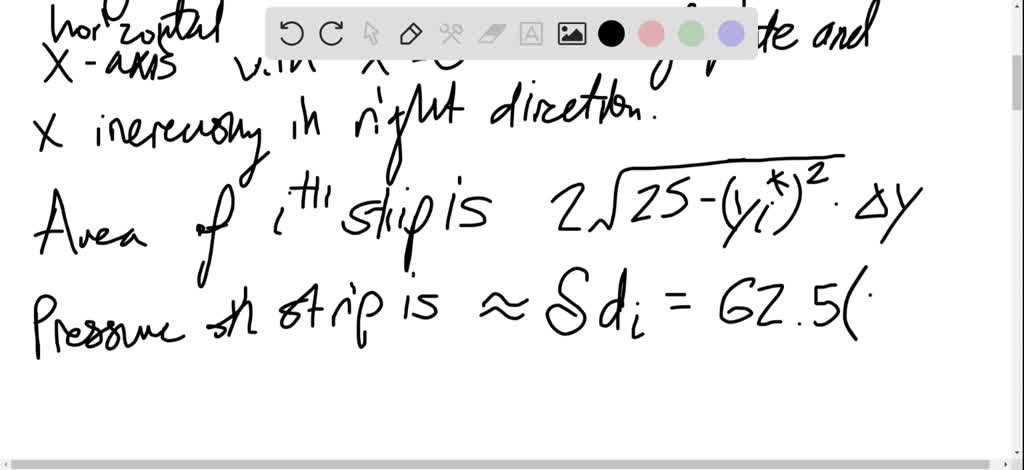 horizontal and
x-axis with x
x increasing in right direction.
Area of iᵗʰ strip is 2√25-(yi*)² · Δy
Pressure on strip is ≈ δdᵢ = 62.5(